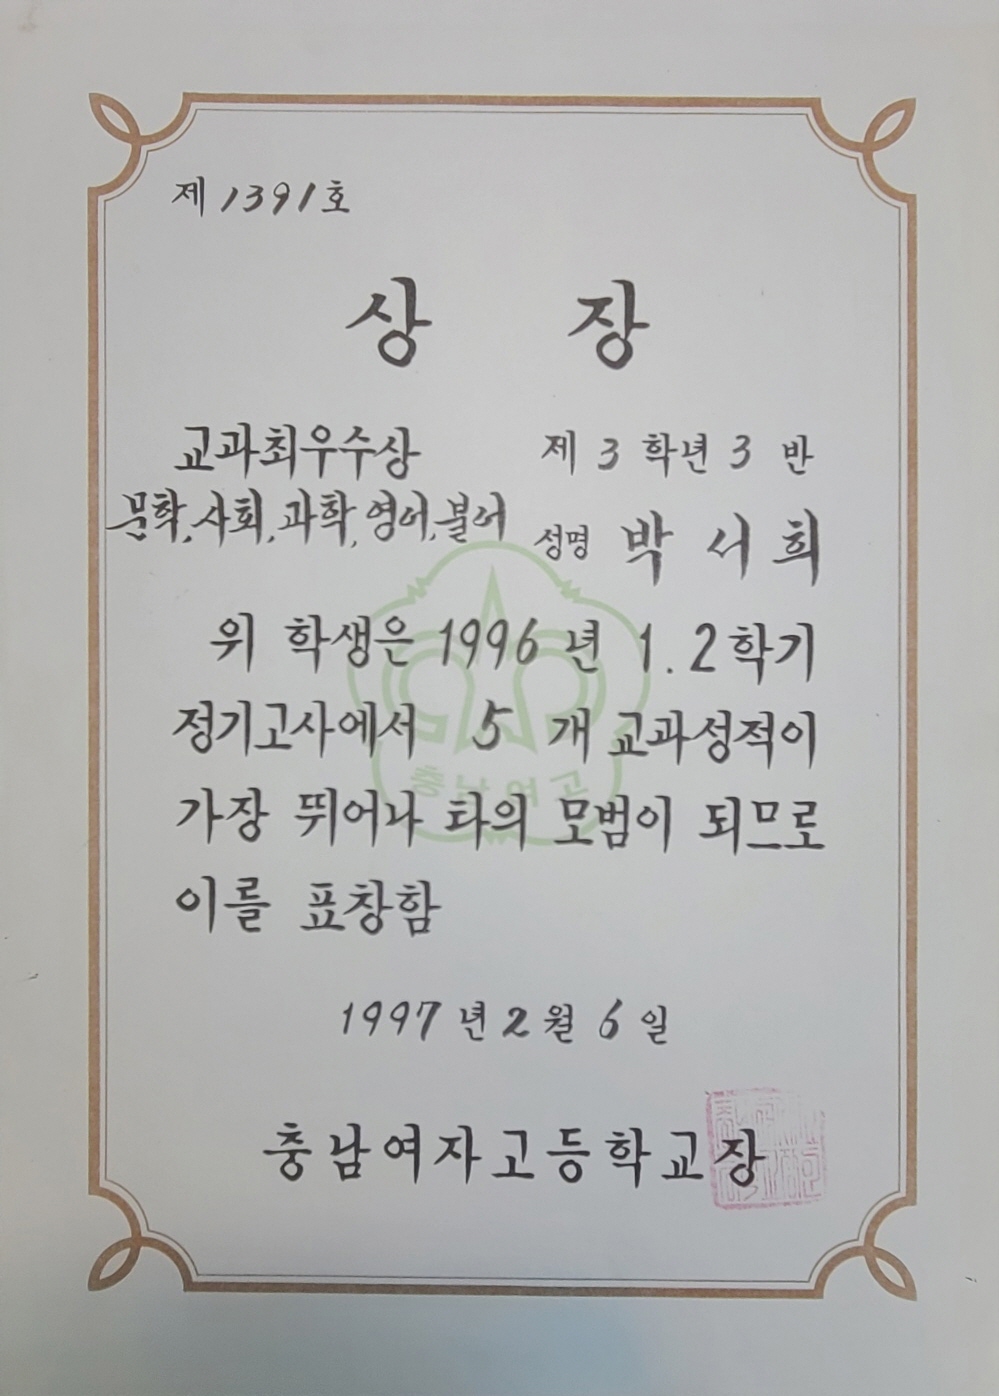 제 1391 호
상 장
교과최우수상 제 3 학년 3 반
문학, 사회, 과학, 영어, 불어 성명 박 서 희
위 학생은 1996 년 1. 2 학기
정기고사에서 5 개 교과성적이
가장 뛰어나 타의 모범이 되므로
이를 표창함
충남여고
1997 년 2 월 6 일
충남여자고등학교장